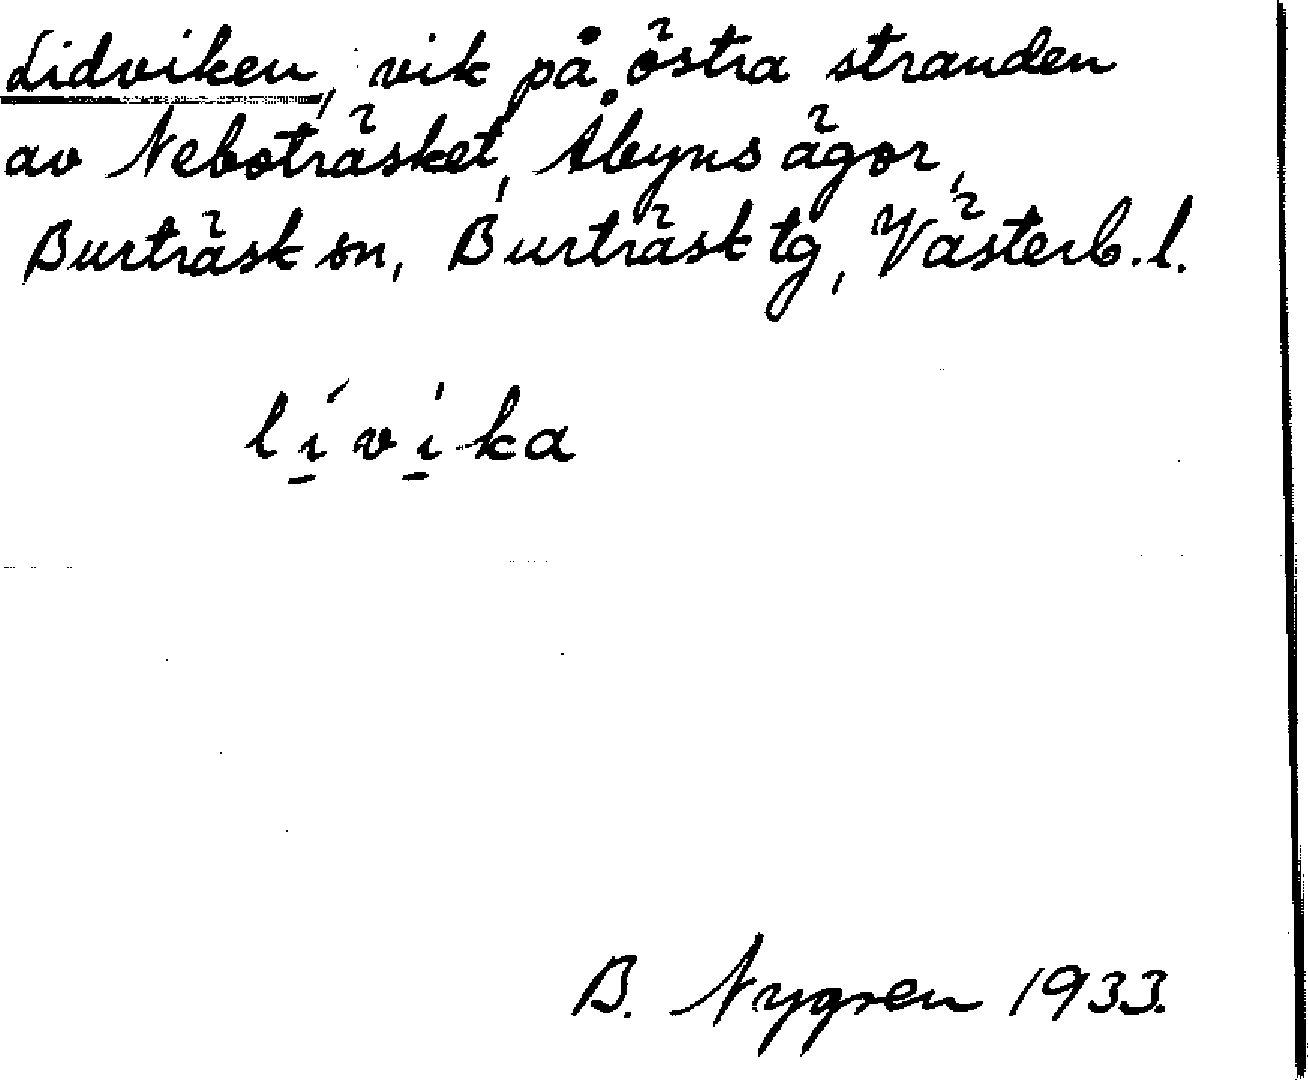 Lidviken, vik på östra stranden
av Neboträsket, Åbyns ägor,
Burträsk sn, Burträsk tg, Västerb. l.
lívi̍ka
B. Nygren 1933.